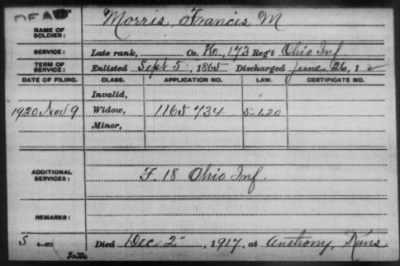 DEAD
NAME OF SOLDIER: Morris, Francis M
SERVICE: Late rank, Co. K., 173 Reg't Ohio Inf
TERM OF SERVICE: Enlisted Sept 5, 1865 Discharged June 26, 1
DATE OF FILING. CLASS. APPLICATION NO. LAW. CERTIFICATE NO.
Invalid,
1920 Nov 9 Widow, 1165734 5-1-20
Minor,
ADDITIONAL SERVICES: F. 18 Ohio Inf
REMARKS:
S Died Dec 2, 1917, at Anthony, Kans